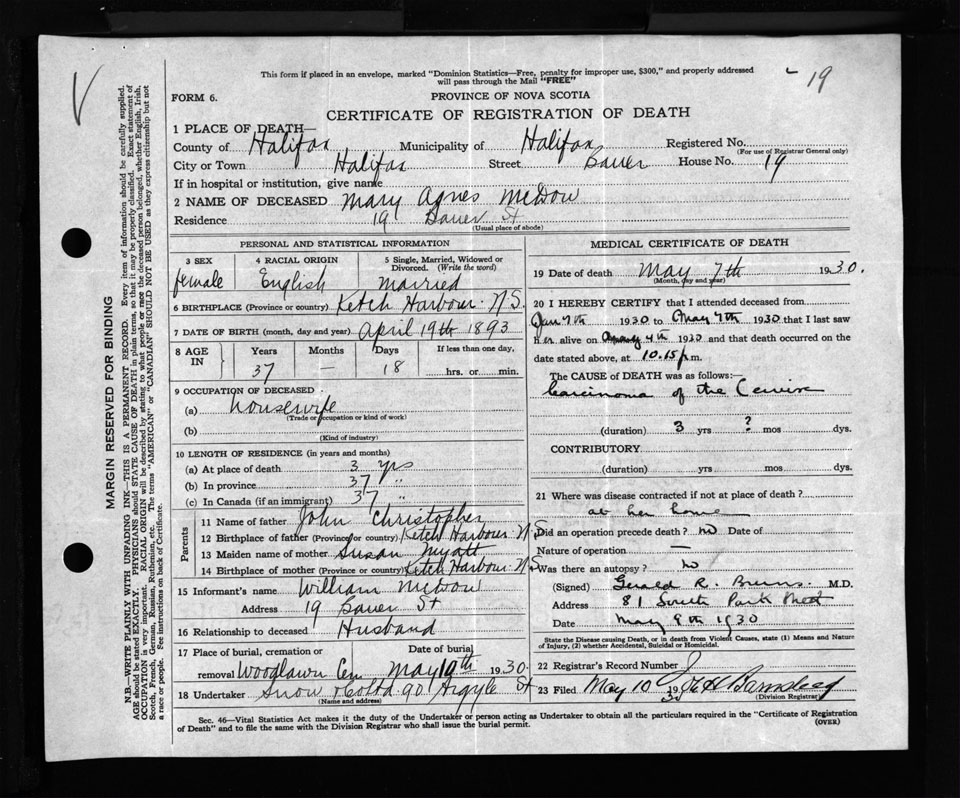 - 19
This form if placed in an envelope, marked "Dominion Statistics—Free, penalty for improper use, $300," and properly addressed
will pass through the Mail "FREE"
FORM 6.
PROVINCE OF NOVA SCOTIA
CERTIFICATE OF REGISTRATION OF DEATH
1 PLACE OF DEATH—
County of Halifax Municipality of Halifax Registered No.
(For use of Registrar General only)
City or Town Halifax Street Bauer House No. 19
If in hospital or institution, give name
2 NAME OF DECEASED Mary Agnes McDow
Residence 19 Bauer St
(Usual place of abode)
PERSONAL AND STATISTICAL INFORMATION
3 SEX
female
4 RACIAL ORIGIN
English
5 Single, Married, Widowed or
Divorced. (Write the word)
Married
6 BIRTHPLACE (Province or country) Ketch Harbour N.S.
7 DATE OF BIRTH (month, day and year) April 19th 1893
8 AGE IN
Years Months Days If less than one day,
37 — 18 hrs. or min.
9 OCCUPATION OF DECEASED
(a) housewife
(Trade or occupation or kind of work)
(b)
(Kind of industry)
10 LENGTH OF RESIDENCE (in years and months)
(a) At place of death 3 yrs
(b) In province 37 "
(c) In Canada (if an immigrant) 37 "
Parents
11 Name of father John Christopher
12 Birthplace of father (Province or country) Ketch Harbour N.S.
13 Maiden name of mother Susan Myatt
14 Birthplace of mother (Province or country) Ketch Harbour N.S.
15 Informant's name William McDow
Address 19 Bauer St
16 Relationship to deceased Husband
17 Place of burial, cremation or Date of burial
removal Woodlawn Cem May 10th 1930.
18 Undertaker Snow & Co Ltd 90 Argyle St
(Name and address)
MEDICAL CERTIFICATE OF DEATH
19 Date of death May 7th 1930.
(Month, day and year)
20 I HEREBY CERTIFY that I attended deceased from
Jan 7th 1930 to May 7th 1930 that I last saw
h er alive on 4th 1930 and that death occurred on the
date stated above, at 10.15 p.m.
The CAUSE of DEATH was as follows:—
Carcinoma of the Cervix
(duration) 3 yrs ? mos dys.
CONTRIBUTORY.
(duration) yrs mos dys.
21 Where was disease contracted if not at place of death?
at her home
Did an operation precede death? no Date of
Nature of operation —
Was there an autopsy? no
(Signed) Gerald R. Burns. M.D.
Address 81 South Park Street
Date May 9th 1930
State the Disease causing Death, or in death from Violent Causes, state (1) Means and Nature
of Injury, (2) whether Accidental, Suicidal or Homicidal.
22 Registrar's Record Number
23 Filed May 10 1930
(Division Registrar)
Sec. 46—Vital Statistics Act makes it the duty of the Undertaker or person acting as Undertaker to obtain all the particulars required in the "Certificate of Registration
of Death" and to file the same with the Division Registrar who shall issue the burial permit.
(OVER)
MARGIN RESERVED FOR BINDING
N.B.—WRITE PLAINLY WITH UNFADING INK—THIS IS A PERMANENT RECORD. Every item of information should be carefully supplied.
AGE should be stated EXACTLY. PHYSICIANS should STATE CAUSE OF DEATH in plain terms, so that it may be properly classified. Exact statement of
OCCUPATION is very important. RACIAL ORIGIN will be described by stating to what people or race the deceased person belonged, whether English, Irish,
Scotch, French, German, Russian, Ruthenian, etc. The terms "AMERICAN" or "CANADIAN" SHOULD NOT BE USED as they express citizenship but not
a race or people. See instructions on back of Certificate.